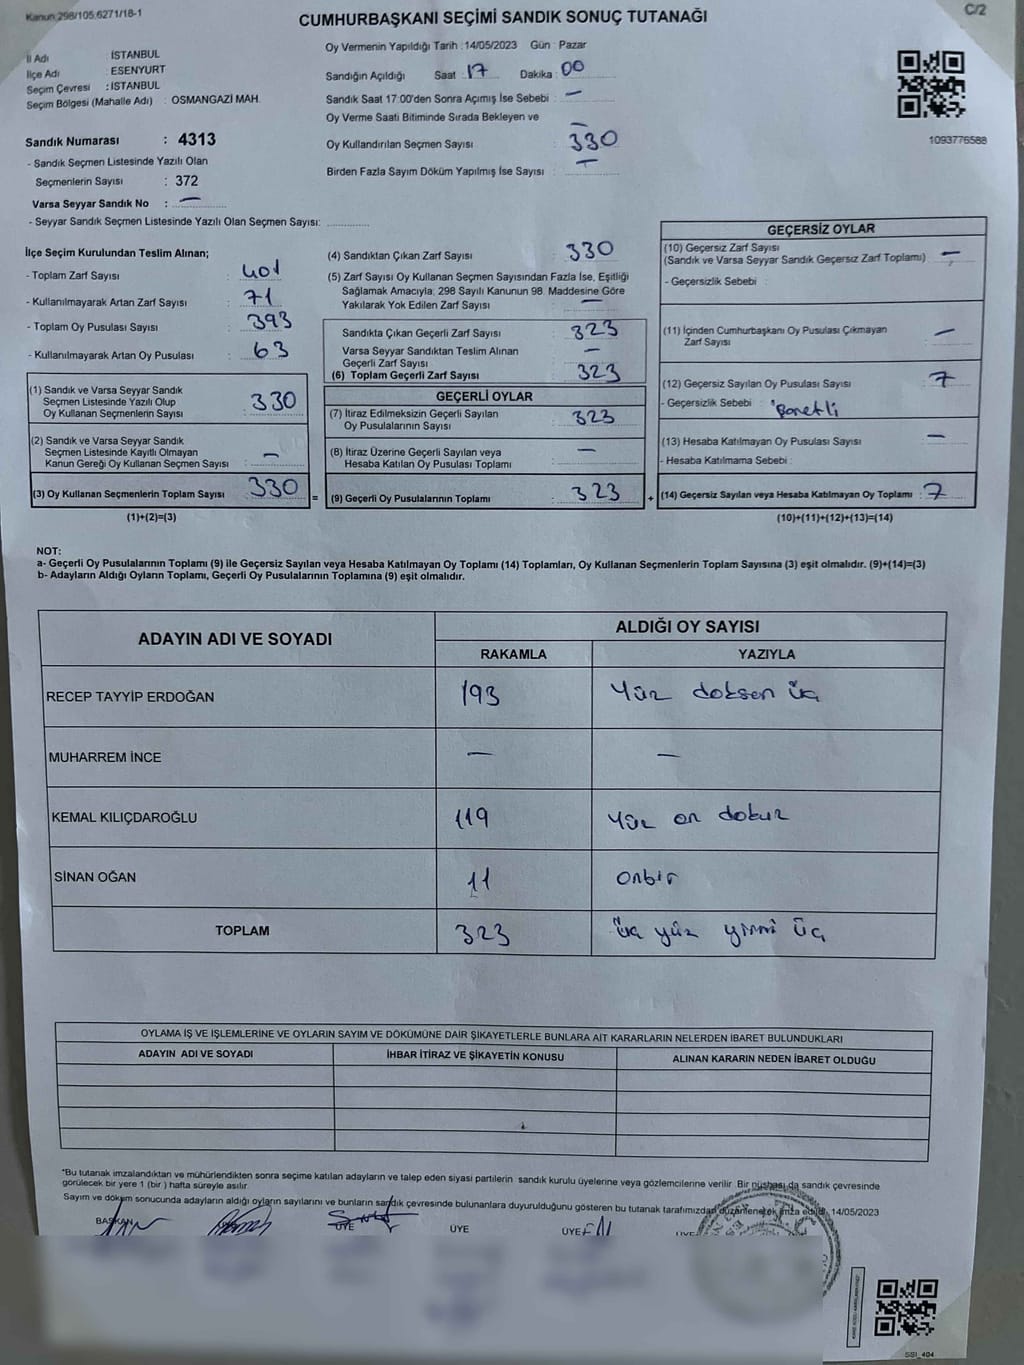 Kanun:298/105;6271/18-1
C/2
CUMHURBAŞKANI SEÇİMİ SANDIK SONUÇ TUTANAĞI
İl Adı : İSTANBUL
İlçe Adı : ESENYURT
Seçim Çevresi : İSTANBUL
Seçim Bölgesi (Mahalle Adı) : OSMANGAZİ MAH.
Sandık Numarası : 4313
- Sandık Seçmen Listesinde Yazılı Olan
Seçmenlerin Sayısı : 372
Varsa Seyyar Sandık No : —
- Seyyar Sandık Seçmen Listesinde Yazılı Olan Seçmen Sayısı:
Oy Vermenin Yapıldığı Tarih :14/05/2023 Gün : Pazar
Sandığın Açıldığı Saat : 17 Dakika : 00
Sandık Saat 17:00'den Sonra Açımış İse Sebebi : —
Oy Verme Saati Bitiminde Sırada Bekleyen ve —
Oy Kullandırılan Seçmen Sayısı : 330
Birden Fazla Sayım Döküm Yapılmış İse Sayısı : —
1093776588
İlçe Seçim Kurulundan Teslim Alınan;
- Toplam Zarf Sayısı : 401
- Kullanılmayarak Artan Zarf Sayısı : 71
- Toplam Oy Pusulası Sayısı : 393
- Kullanılmayarak Artan Oy Pusulası : 63
(1) Sandık ve Varsa Seyyar Sandık
Seçmen Listesinde Yazılı Olup
Oy Kullanan Seçmenlerin Sayısı : 330
(2) Sandık ve Varsa Seyyar Sandık
Seçmen Listesinde Kayıtlı Olmayan
Kanun Gereği Oy Kullanan Seçmen Sayısı : —
(3) Oy Kullanan Seçmenlerin Toplam Sayısı : 330
(1)+(2)=(3)
(4) Sandıktan Çıkan Zarf Sayısı : 330
(5) Zarf Sayısı Oy Kullanan Seçmen Sayısından Fazla İse, Eşitliği
Sağlamak Amacıyla; 298 Sayılı Kanunun 98. Maddesine Göre
Yakılarak Yok Edilen Zarf Sayısı : —
Sandıkta Çıkan Geçerli Zarf Sayısı : 323
Varsa Seyyar Sandıktan Teslim Alınan
Geçerli Zarf Sayısı : —
(6) Toplam Geçerli Zarf Sayısı : 323
GEÇERLİ OYLAR
(7) İtiraz Edilmeksizin Geçerli Sayılan
Oy Pusulalarının Sayısı : 323
(8) İtiraz Üzerine Geçerli Sayılan veya
Hesaba Katılan Oy Pusulası Toplamı : —
= (9) Geçerli Oy Pusulalarının Toplamı : 323 +
GEÇERSİZ OYLAR
(10) Geçersiz Zarf Sayısı
(Sandık ve Varsa Seyyar Sandık Geçersiz Zarf Toplamı) : —
- Geçersizlik Sebebi :
(11) İçinden Cumhurbaşkanı Oy Pusulası Çıkmayan
Zarf Sayısı : —
(12) Geçersiz Sayılan Oy Pusulası Sayısı : 7
- Geçersizlik Sebebi :
(13) Hesaba Katılmayan Oy Pusulası Sayısı : —
- Hesaba Katılmama Sebebi :
(14) Geçersiz Sayılan veya Hesaba Katılmayan Oy Toplamı : 7
(10)+(11)+(12)+(13)=(14)
NOT:
a- Geçerli Oy Pusulalarının Toplamı (9) ile Geçersiz Sayılan veya Hesaba Katılmayan Oy Toplamı (14) Toplamları, Oy Kullanan Seçmenlerin Toplam Sayısına (3) eşit olmalıdır. (9)+(14)=(3)
b- Adayların Aldığı Oyların Toplamı, Geçerli Oy Pusulalarının Toplamına (9) eşit olmalıdır.
ADAYIN ADI VE SOYADI
ALDIĞI OY SAYISI
RAKAMLA YAZIYLA
RECEP TAYYİP ERDOĞAN 193 Yüz doksan üç
MUHARREM İNCE — —
KEMAL KILIÇDAROĞLU 119 Yüz on dokuz
SİNAN OĞAN 11 Onbir
TOPLAM 323 üç yüz yirmi üç
OYLAMA İŞ VE İŞLEMLERİNE VE OYLARIN SAYIM VE DÖKÜMÜNE DAİR ŞİKAYETLERLE BUNLARA AİT KARARLARIN NELERDEN İBARET BULUNDUKLARI
ADAYIN ADI VE SOYADI İHBAR İTİRAZ VE ŞİKAYETİN KONUSU ALINAN KARARIN NEDEN İBARET OLDUĞU
*Bu tutanak imzalandıktan ve mühürlendikten sonra seçime katılan adayların ve talep eden siyasi partilerin sandık kurulu üyelerine veya gözlemcilerine verilir. Bir nüshası da sandık çevresinde
görülecek bir yere 1 (bir ) hafta süreyle asılır.
Sayım ve döküm sonucunda adayların aldığı oyların sayılarını ve bunların sandık çevresinde bulunanlara duyurulduğunu gösteren bu tutanak tarafımızdan düzenlenerek imza edildi. 14/05/2023
BAŞKAN ÜYE ÜYE ÜYE ÜYE
SSI_404